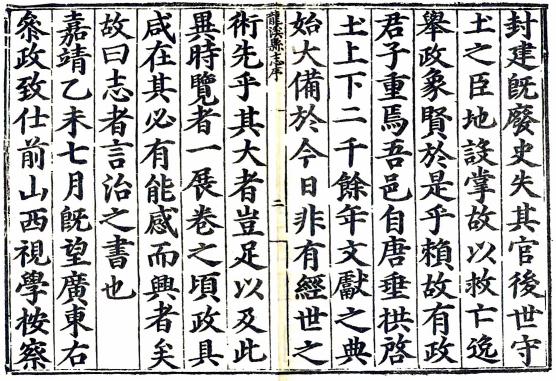 封建旣廢史失其官後世守
土之臣地設掌故以救亡逸
舉政象賢於是乎賴故有政
君子重焉吾邑自唐垂拱啓
土上下二千餘年文獻之典
始大備於今日非有經世之
龍溪縣志序
二
術先乎其大者豈足以及此
異時覽者一展卷之頃政具
咸在其必有能感而興者矣
故曰志者言治之書也
嘉靖乙未七月旣望廣東右
叅政致仕前山西視學按察